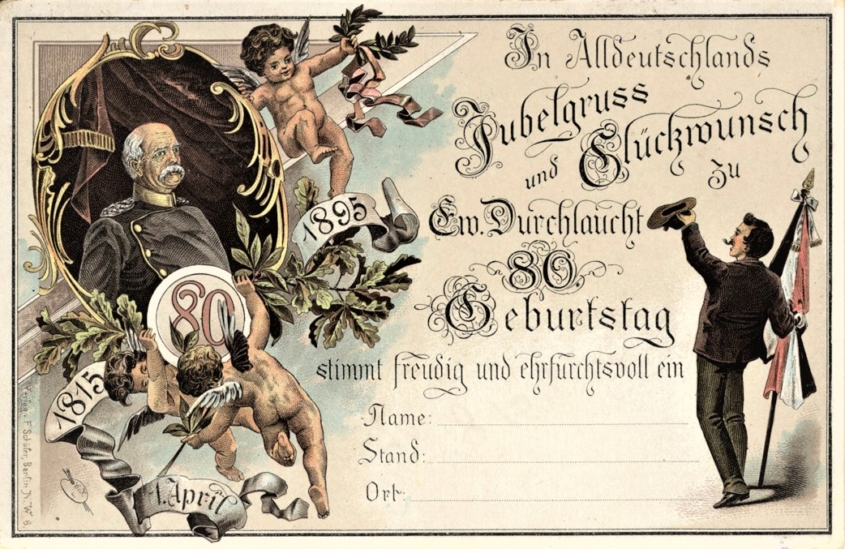 In Alldeutschlands
Jubelgruss
und Glückwunsch
zu
Ew. Durchlaucht
80
Geburtstag
stimmt freudig und ehrfurchtsvoll ein
Name:
Stand:
Ort:
1895
80
1815
1. April
F. Schüler, Berlin N.W. 6.